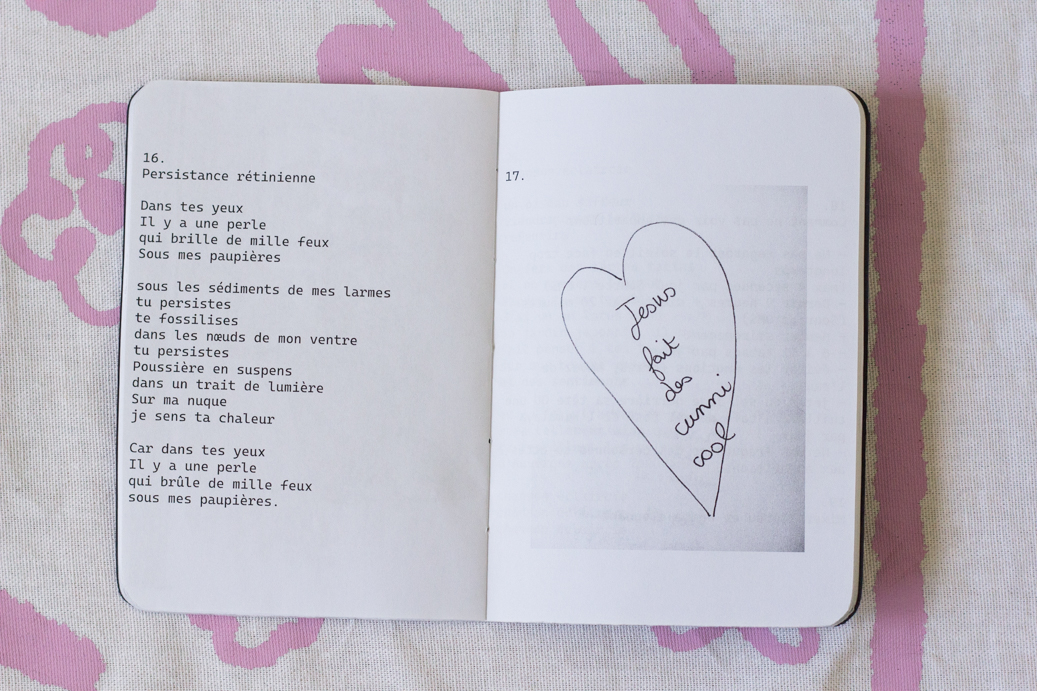 16.
Persistance rétinienne
Dans tes yeux
Il y a une perle
qui brille de mille feux
Sous mes paupières
sous les sédiments de mes larmes
tu persistes
te fossilises
dans les nœuds de mon ventre
tu persistes
Poussière en suspens
dans un trait de lumière
Sur ma nuque
je sens ta chaleur
Car dans tes yeux
Il y a une perle
qui brûle de mille feux
sous mes paupières.
17.
Jesus
fait
des
cunni
cool